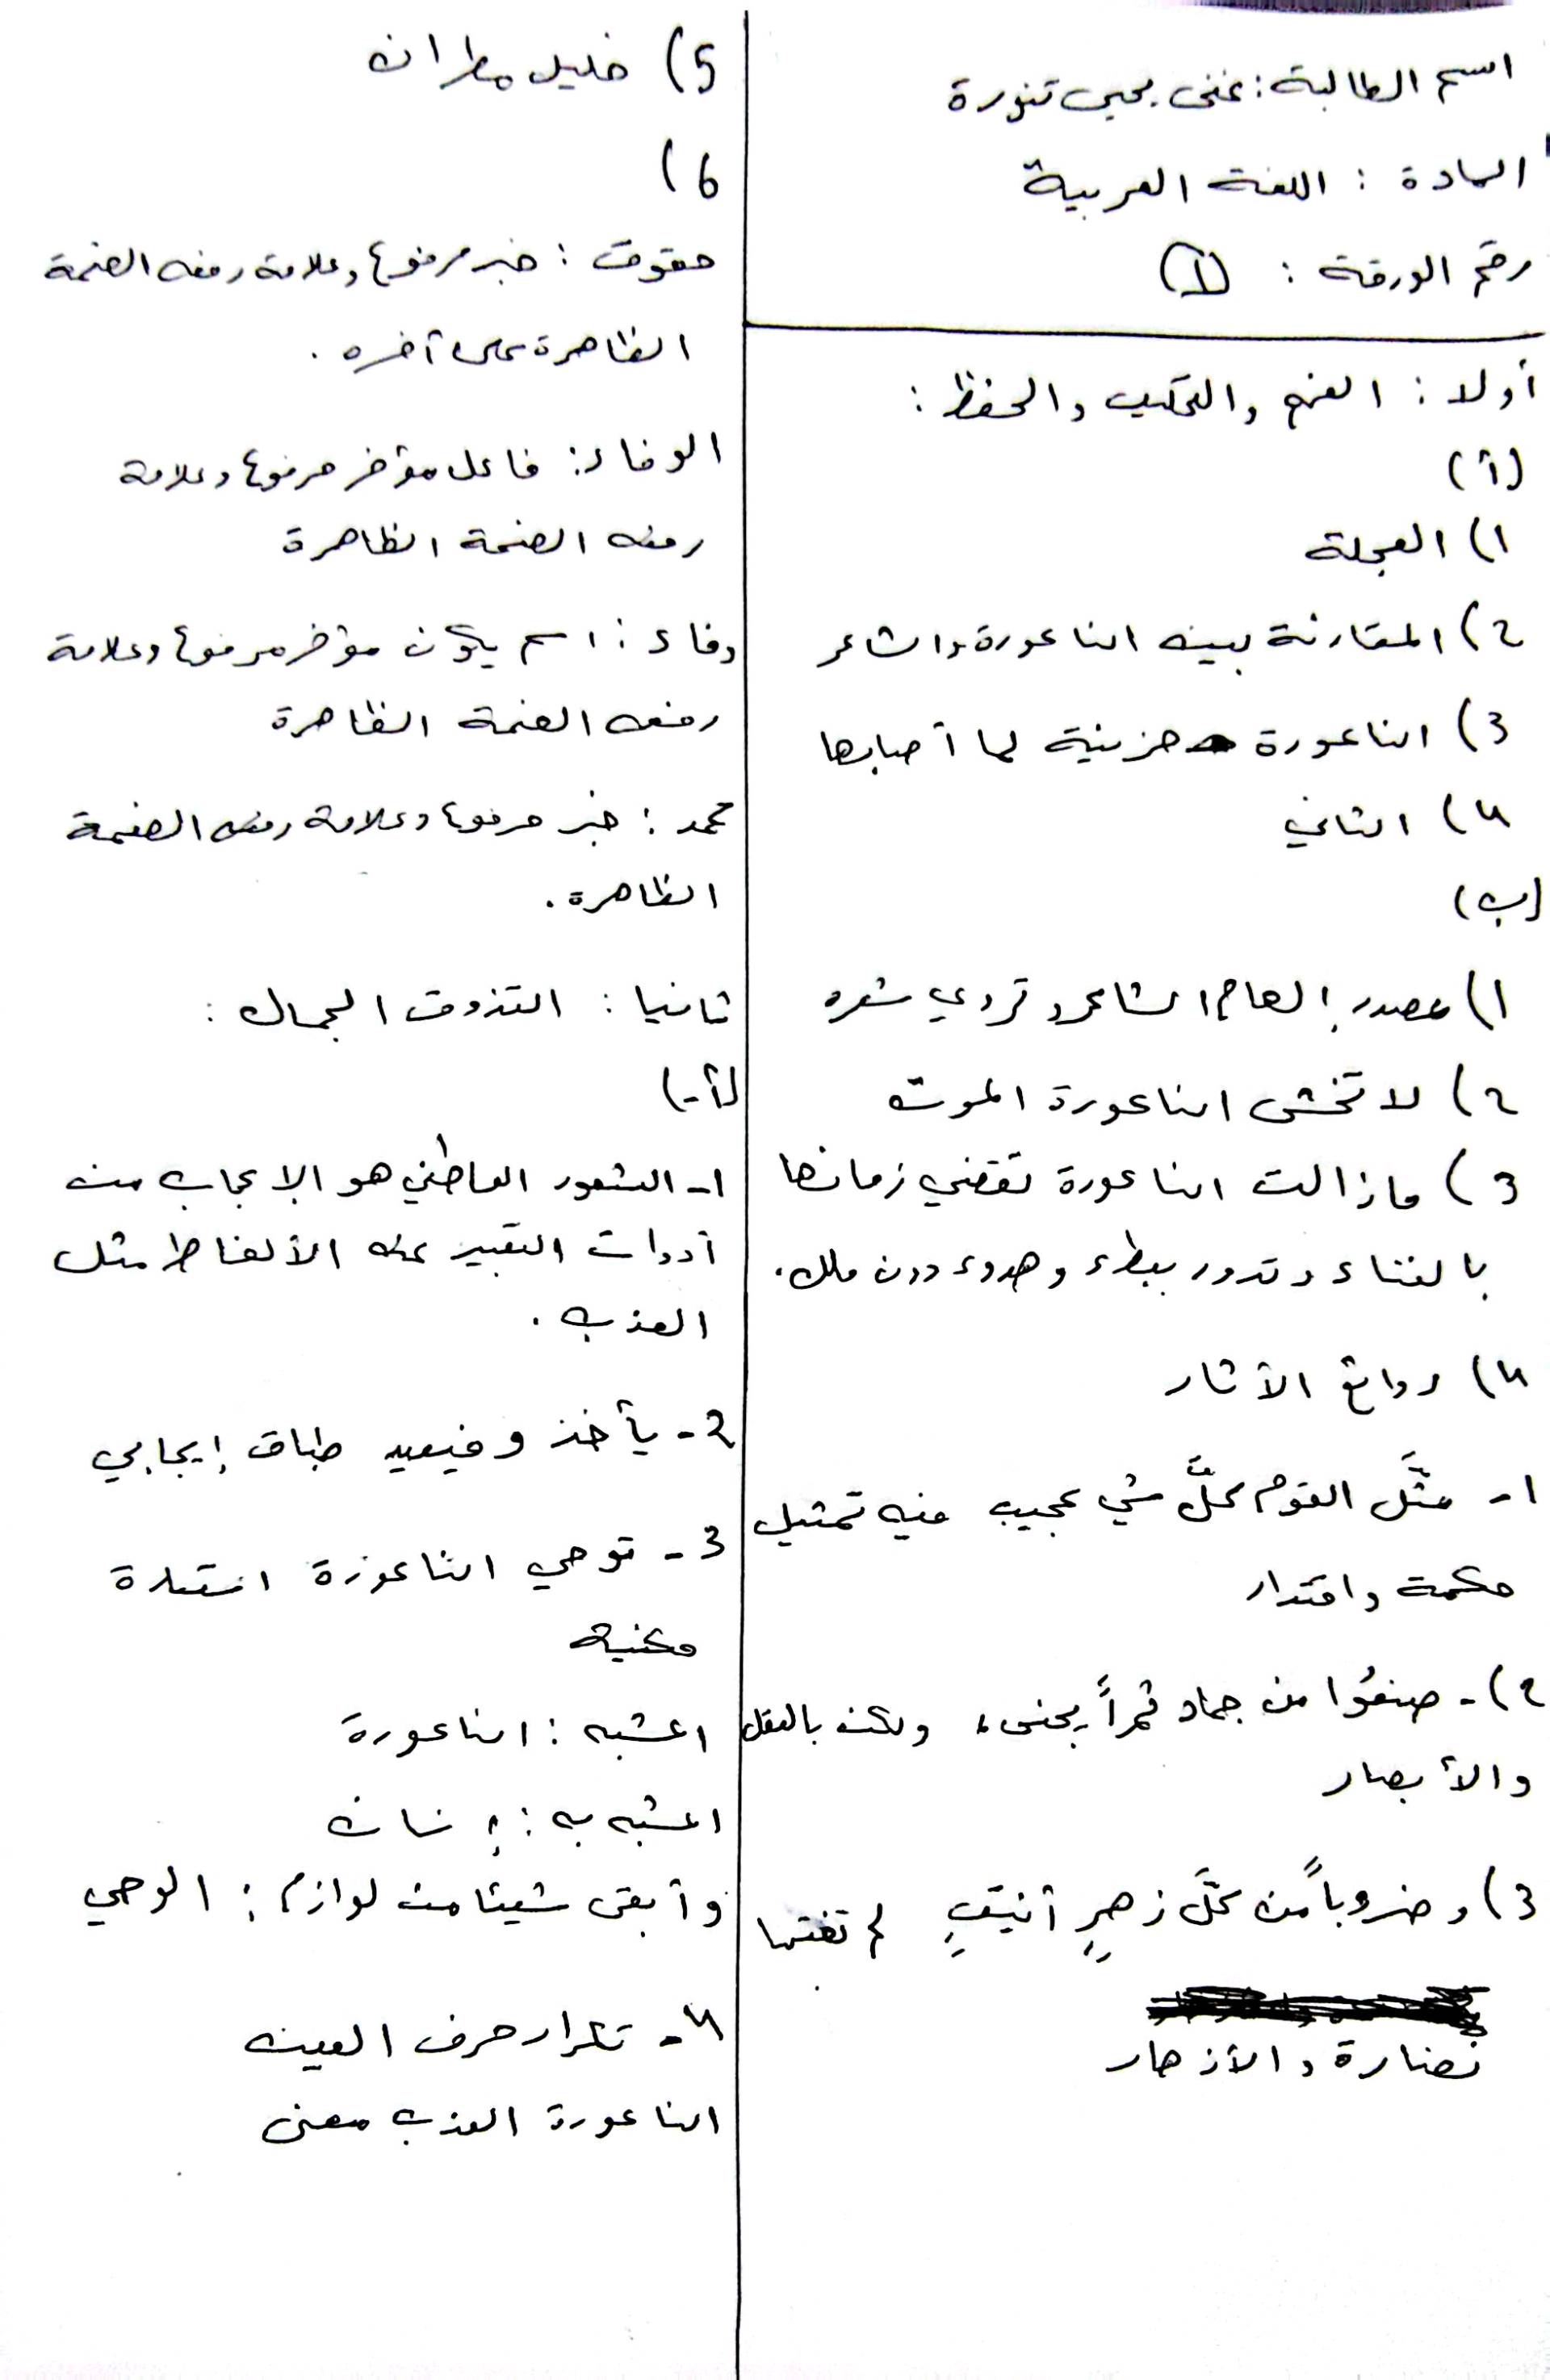 اسم الطالبة: غنى يحيى تنورة
المادة : اللغة العربية
رقم الورقة : (1)
أولا : الفهم والتحكيب والحفظ :
(أ)
1) العجلة
2) المقارنة بين الناعورة والشاعر
3) الناعورة حزينة لما أصابها
4) الثاني
(ب)
1) مصدر إلهام الشاعر وتروي شعره
2) لا تخشى الناعورة الموت
3) مازالت الناعورة تقضي زمانها
بالغناء وتدور ببطء وهدوء دون ملل.
4) روائع الآثار
1- مثَّل القوم كلَّ شيء عجيب فيه تمثيل
حكمة واقتدار
2)- صنعُوا من جماد ثمراً يجنى، ولكن بالعقل
والأبصار
3) وضروباً من كلَّ زهرٍ أنيقٍ لم تفتها
نضارة والأزهار
5) خليل مطران
6)
حقوق : خبر مرفوع وعلامة رفعه الضمة
الظاهرة على آخره .
الوفاء : فاعل مؤخر مرفوع وعلامة
رفعه الضمة الظاهرة
وفاء : اسم يكون مؤخر مرفوع وعلامة
رفعه الضمة الظاهرة
محمد : خبر مرفوع وعلامة رفعه الضمة
الظاهرة .
ثانيا : التذوق الجمال :
(أ-)
1- الشعور العاطفي هو الإعجاب من
أدوات التعبير عنه الألفاظ مثل
العذب .
2- يأخذ وفيعيد طباق إيجابي
3- توحي الناعورة استعارة
مكنية
المشبه : الناعورة
المشبه به : إنسان
وأبقى شيئا من لوازم : الوحي
4- تكرار حرف العين
الناعورة العذب معنى